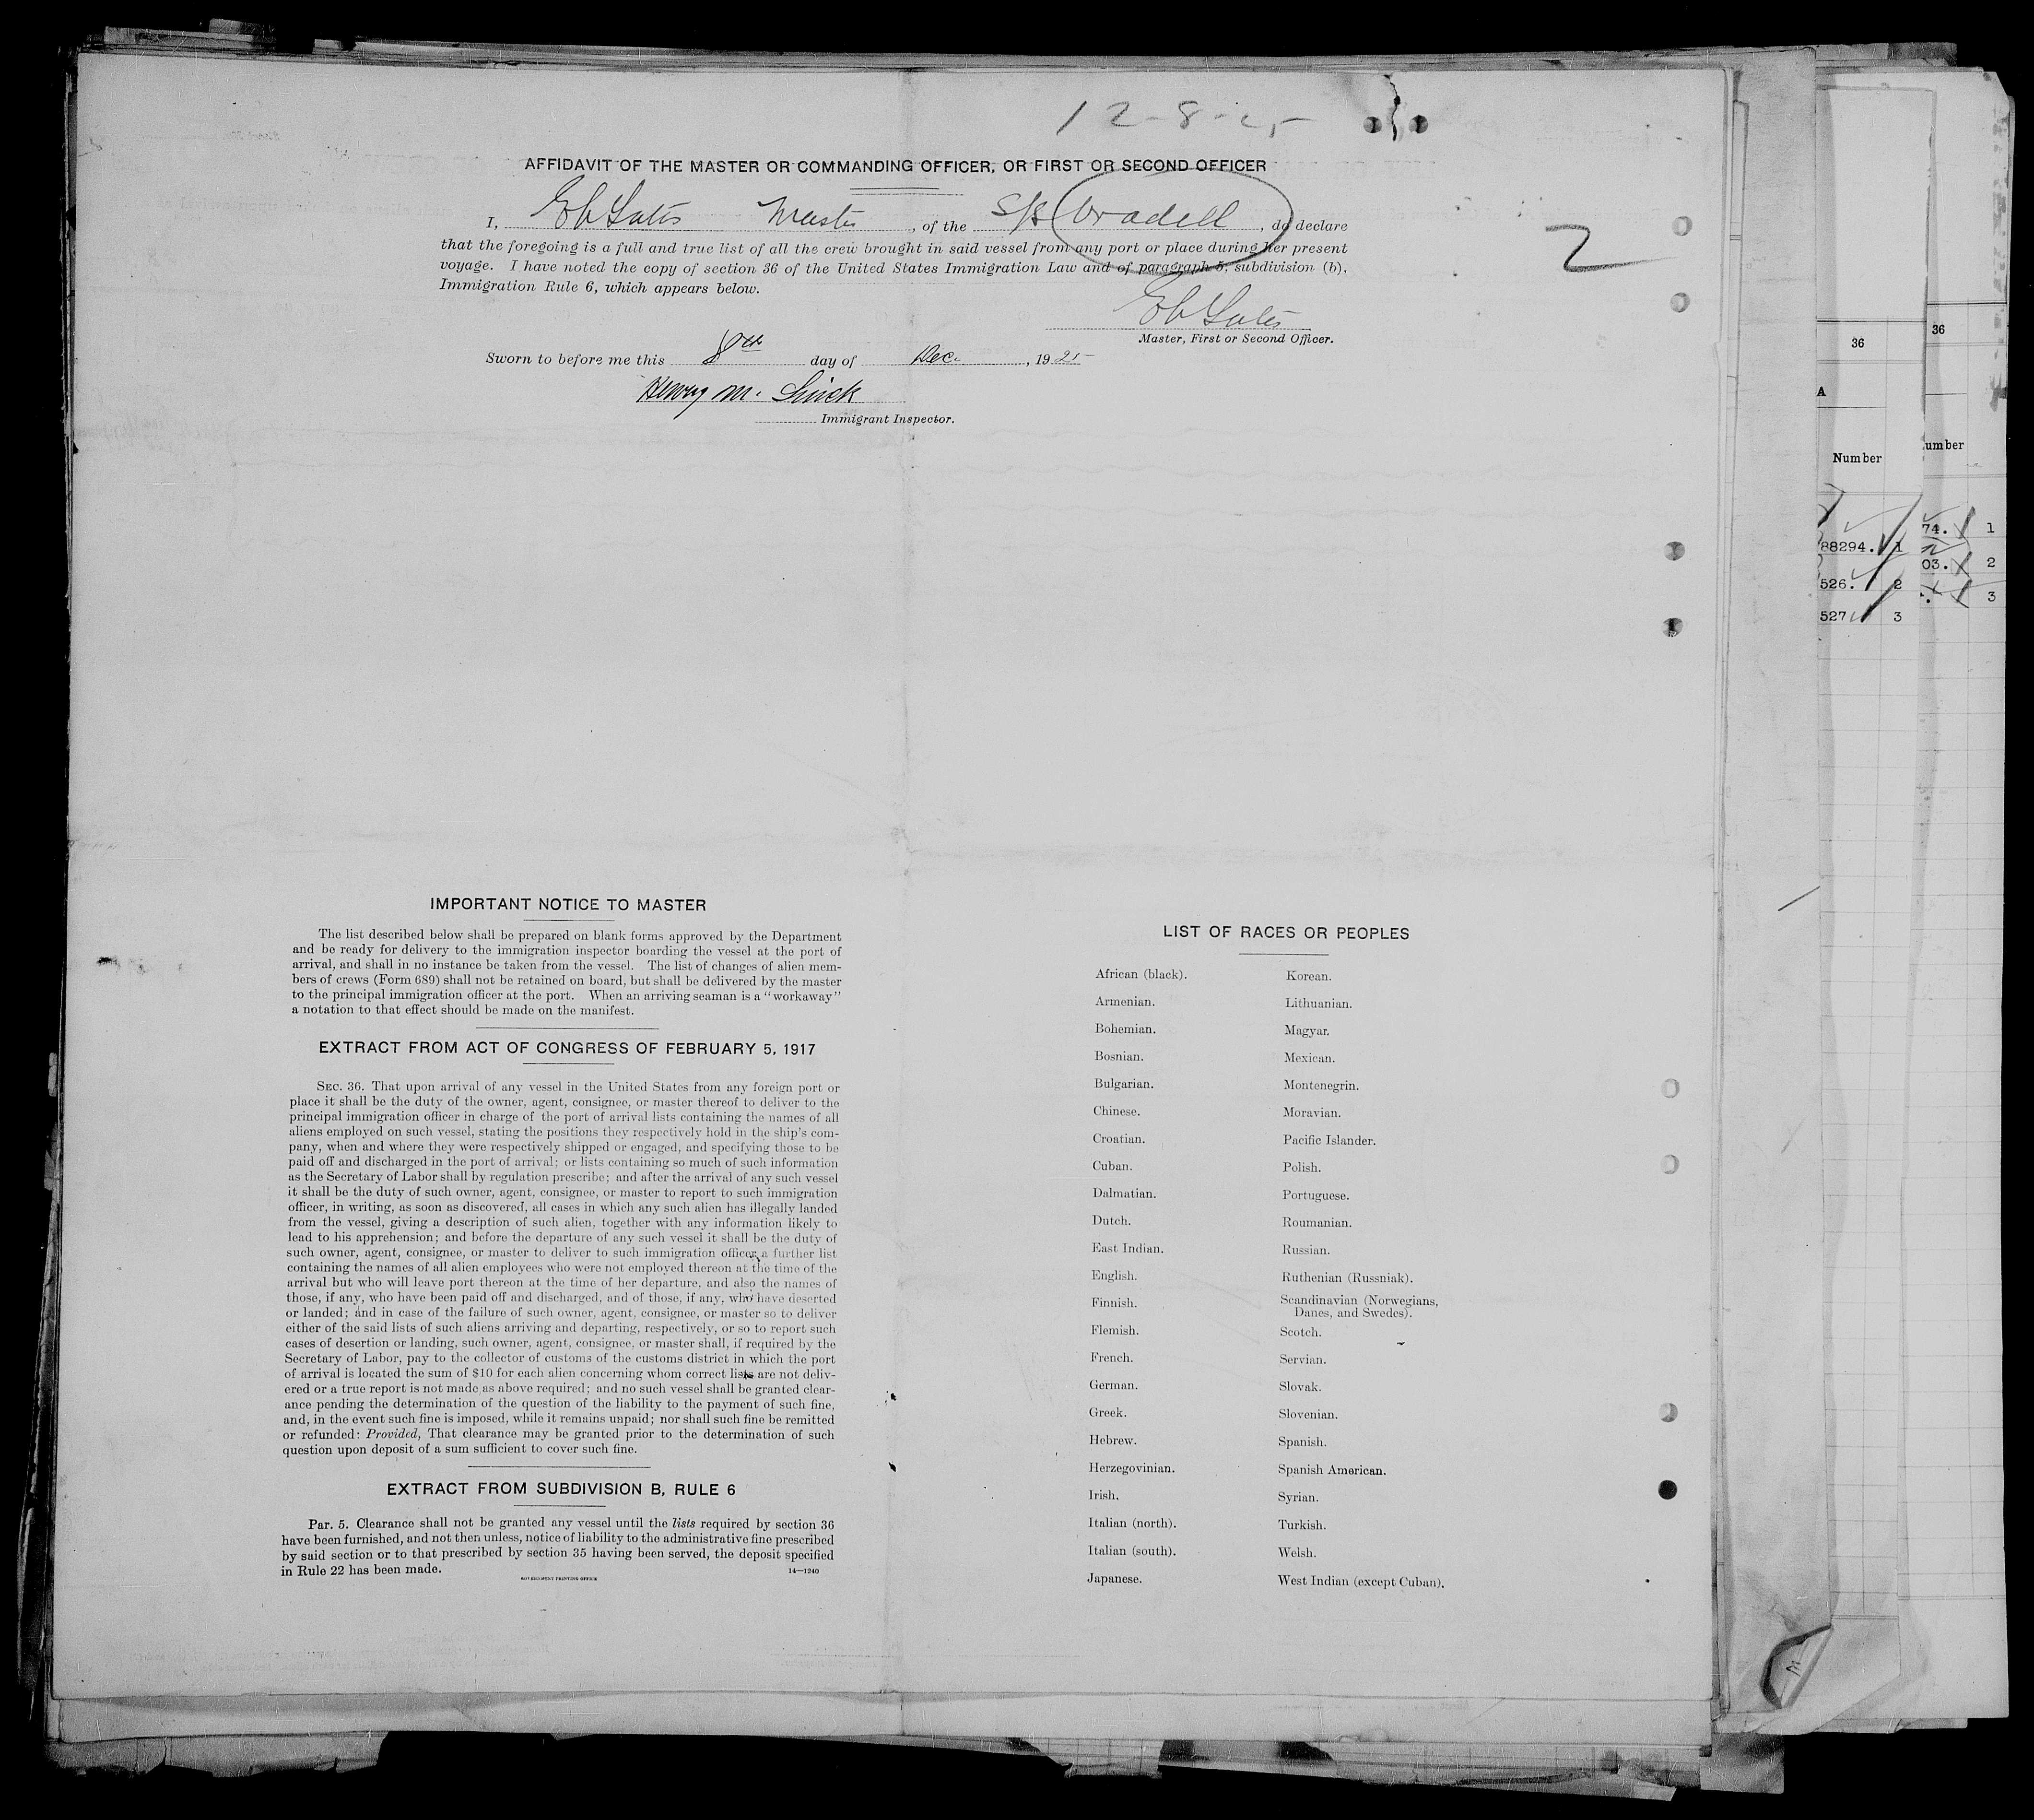 12-8-25
AFFIDAVIT OF THE MASTER OR COMMANDING OFFICER, OR FIRST OR SECOND OFFICER
I, Master, of the S/S Oradell, do declare
that the foregoing is a full and true list of all the crew brought in said vessel from any port or place during her present
voyage. I have noted the copy of section 36 of the United States Immigration Law and of paragraph 5, subdivision (b),
Immigration Rule 6, which appears below.
2
Master, First or Second Officer.
Sworn to before me this 8th day of Dec. , 1925
Henry M.
Immigrant Inspector.
IMPORTANT NOTICE TO MASTER
The list described below shall be prepared on blank forms approved by the Department
and be ready for delivery to the immigration inspector boarding the vessel at the port of
arrival, and shall in no instance be taken from the vessel. The list of changes of alien mem-
bers of crews (Form 689) shall not be retained on board, but shall be delivered by the master
to the principal immigration officer at the port. When an arriving seaman is a "workaway"
a notation to that effect should be made on the manifest.
EXTRACT FROM ACT OF CONGRESS OF FEBRUARY 5, 1917
SEC. 36. That upon arrival of any vessel in the United States from any foreign port or
place it shall be the duty of the owner, agent, consignee, or master thereof to deliver to the
principal immigration officer in charge of the port of arrival lists containing the names of all
aliens employed on such vessel, stating the positions they respectively hold in the ship's com-
pany, when and where they were respectively shipped or engaged, and specifying those to be
paid off and discharged in the port of arrival; or lists containing so much of such information
as the Secretary of Labor shall by regulation prescribe; and after the arrival of any such vessel
it shall be the duty of such owner, agent, consignee, or master to report to such immigration
officer, in writing, as soon as discovered, all cases in which any such alien has illegally landed
from the vessel, giving a description of such alien, together with any information likely to
lead to his apprehension; and before the departure of any such vessel it shall be the duty of
such owner, agent, consignee, or master to deliver to such immigration officer a further list
containing the names of all alien employees who were not employed thereon at the time of the
arrival but who will leave port thereon at the time of her departure, and also the names of
those, if any, who have been paid off and discharged, and of those, if any, who have deserted
or landed; and in case of the failure of such owner, agent, consignee, or master so to deliver
either of the said lists of such aliens arriving and departing, respectively, or so to report such
cases of desertion or landing, such owner, agent, consignee, or master shall, if required by the
Secretary of Labor, pay to the collector of customs of the customs district in which the port
of arrival is located the sum of $10 for each alien concerning whom correct lists are not deliv-
ered or a true report is not made as above required; and no such vessel shall be granted clear-
ance pending the determination of the question of the liability to the payment of such fine,
and, in the event such fine is imposed, while it remains unpaid; nor shall such fine be remitted
or refunded: Provided, That clearance may be granted prior to the determination of such
question upon deposit of a sum sufficient to cover such fine.
EXTRACT FROM SUBDIVISION B, RULE 6
Par. 5. Clearance shall not be granted any vessel until the lists required by section 36
have been furnished, and not then unless, notice of liability to the administrative fine prescribed
by said section or to that prescribed by section 35 having been served, the deposit specified
in Rule 22 has been made.
14—1240
GOVERNMENT PRINTING OFFICE
LIST OF RACES OR PEOPLES
African (black).
Armenian.
Bohemian.
Bosnian.
Bulgarian.
Chinese.
Croatian.
Cuban.
Dalmatian.
Dutch.
East Indian.
English.
Finnish.
Flemish.
French.
German.
Greek.
Hebrew.
Herzegovinian.
Irish.
Italian (north).
Italian (south).
Japanese.
Korean.
Lithuanian.
Magyar.
Mexican.
Montenegrin.
Moravian.
Pacific Islander.
Polish.
Portuguese.
Roumanian.
Russian.
Ruthenian (Russniak).
Scandinavian (Norwegians,
Danes, and Swedes).
Scotch.
Servian.
Slovak.
Slovenian.
Spanish.
Spanish American.
Syrian.
Turkish.
Welsh.
West Indian (except Cuban).
36
A
Number
88294. 1
526. 2
527 3
36
umber
74. 1
03. 2
3